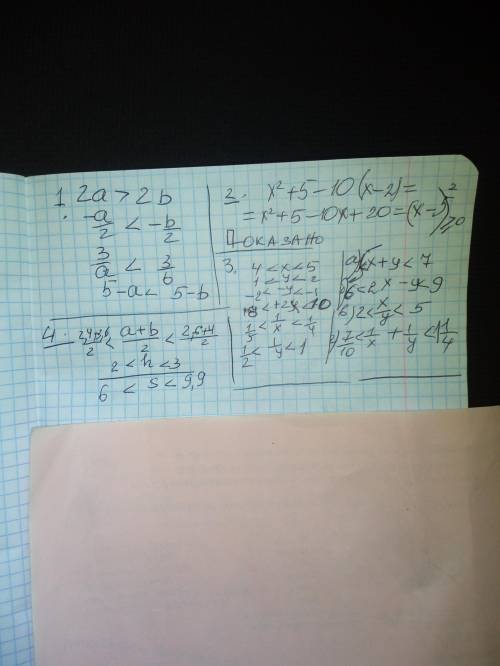 1. 2a > 2b
-a/2 < -b/2
3/a < 3/b
5-a < 5-b
2. x²+5-10(x-2)=
=x²+5-10x+20=(x-5)²≥0
ПОКАЗАНО
3. 4<x<5
1<y<2
-2<-y<-1
8<+2x<10
1/5<1/x<1/4
1/2<1/y<1
а) x+y<7
6<2x-y<9
2<x/y<5
7/10<1/x+1/y<1 1/4
4. <(a+b)/2<
2<h<3
6<S<9,9